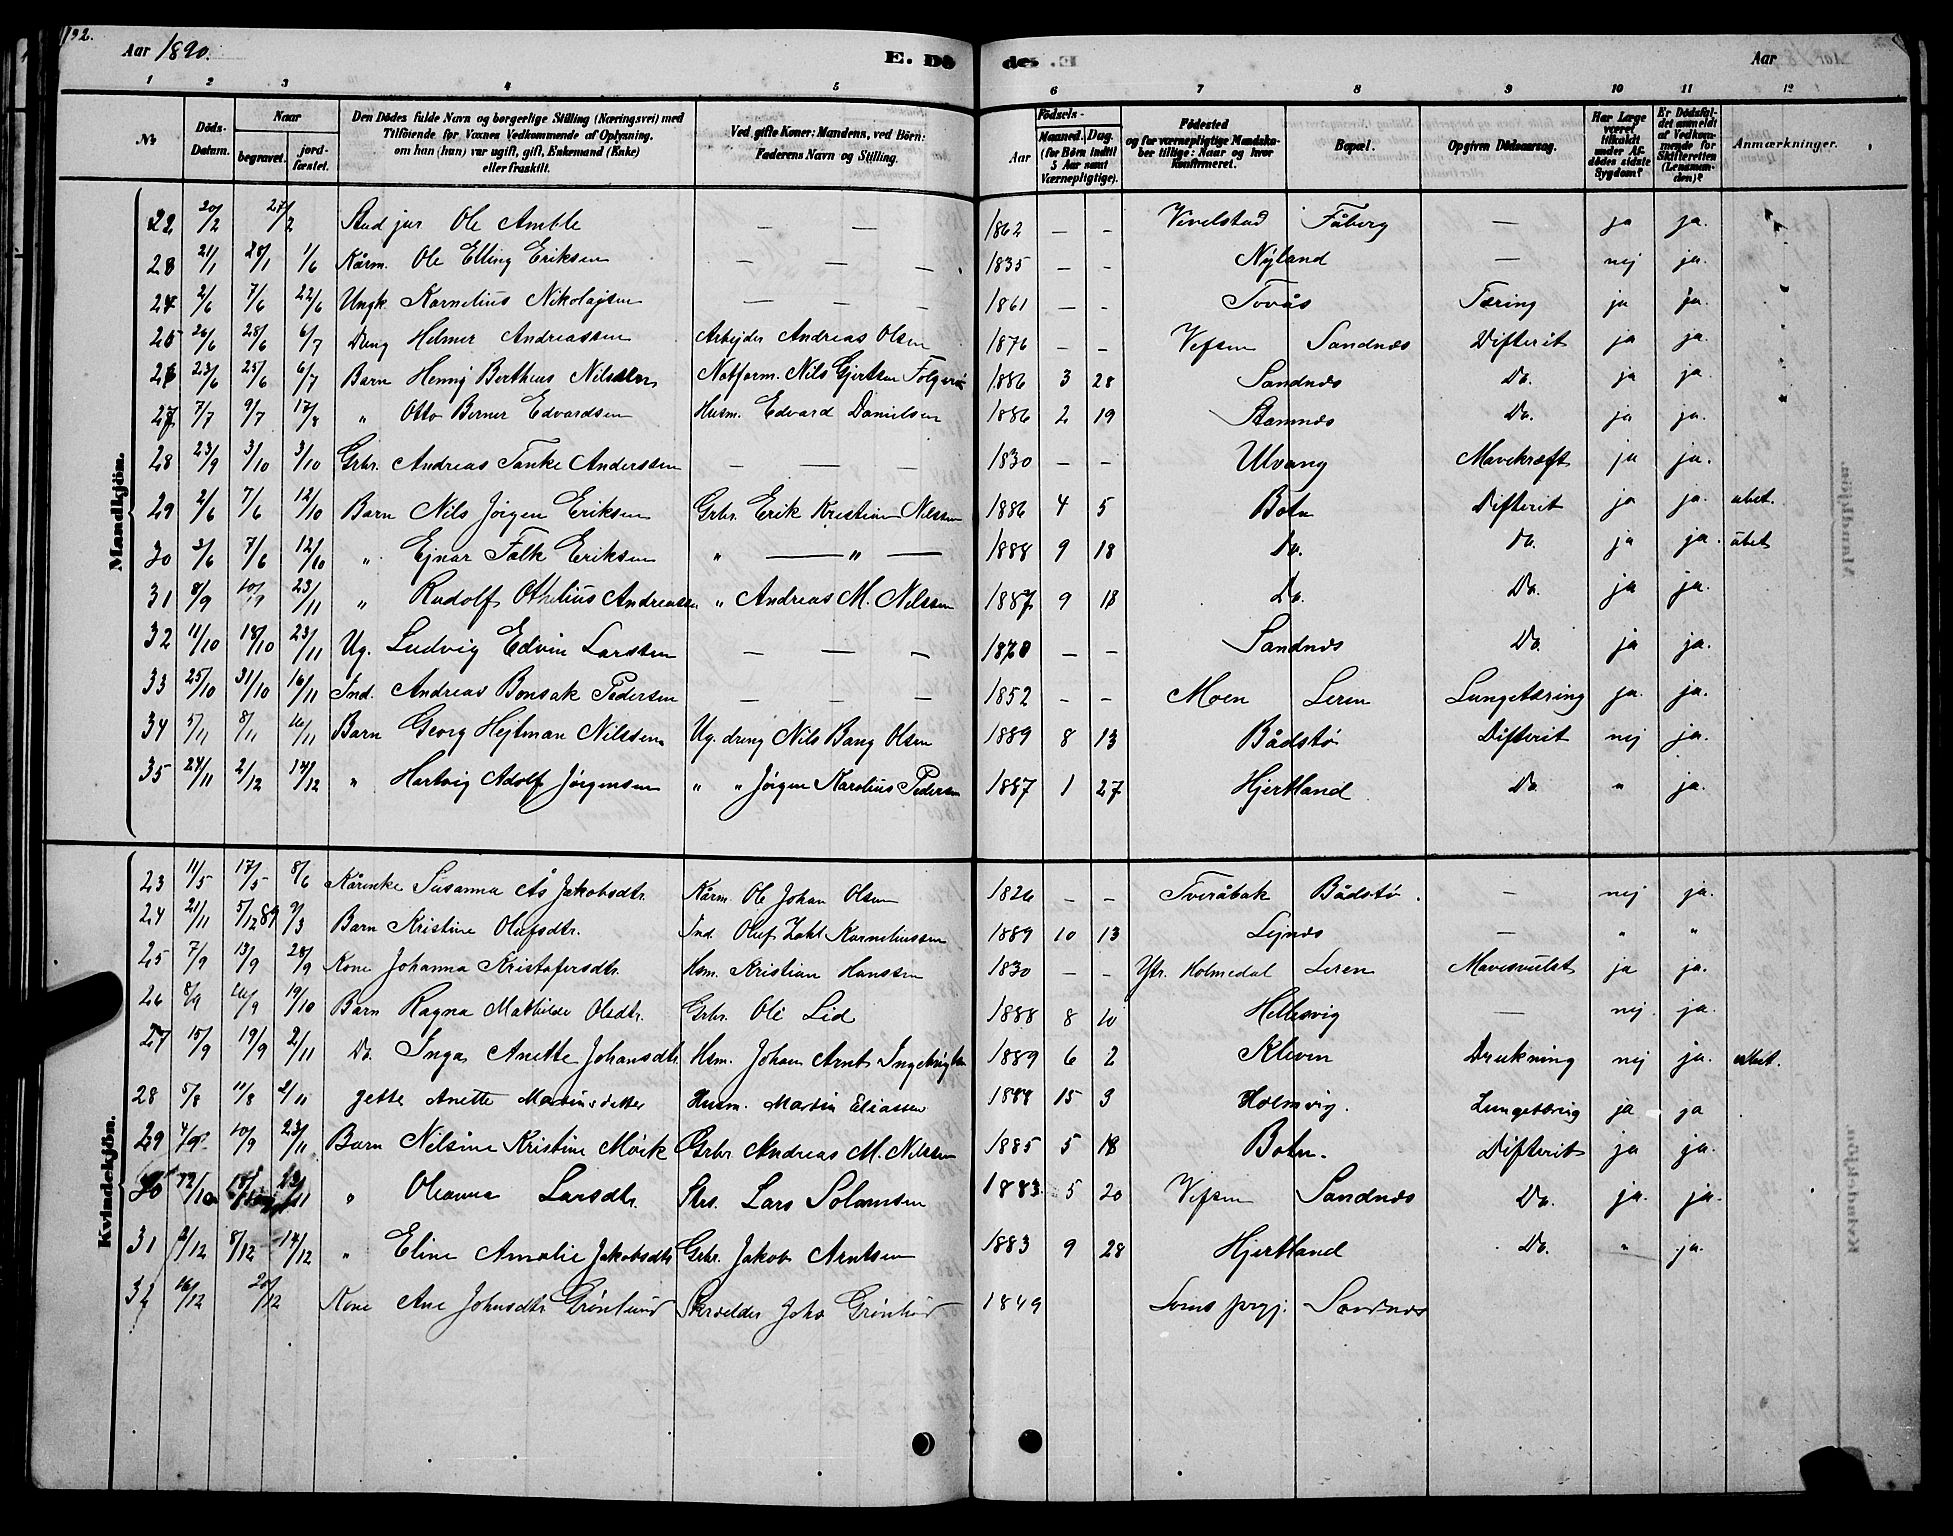 192.
Aar 1890. E. Dö
des. Aar
1 2 3 4 5 6 7 8 9 10 11 12
No. Döds-Datum. Naar begravet. jordfæstet. Den Dödes fulde Navn og borgerlige Stilling (Næringsvei) med Tilföiende for Voxnes Vedkommende af Oplysning, om han (hun) var ugift, gift, Enkemand (Enke) eller fraskilt. Ved gifte Koner: Mandens, ved Börn: Faderens Navn og Stilling. Födsels- Aar Maaned. Dag. (for Börn indtil 5 Aar samt Værnepligtige). Födested og for værnepligtige Mandskaber tillige: Naar og hvor konfirmeret. Bopæl. Opgiven Dödsaarsag. Har Læge været tilkaldt under Afdödes sidste Sygdom? Er Dödsfaldet anmeldt af Vedkommende for Skifteretten (Lensmanden)? Anmærkninger.
Mandkjön.
22 20/2 27/2 Stud jur Ole Amble — — 1862 — — Vevelstad Fåberg — ja ja.
23 21/1 28/1 1/6 Kårm. Ole Elling Eriksen — — — 1835 — — Nyland — nej ja.
24 2/6 7/6 22/6 Ungk. Kornelius Nikolajsen — — — 1861 — — Tovås Tæring ja ja.
25 26/6 28/6 6/7 Dreng Helmer Andreassen Arbejder Andreas Olsen 1876 — — Vefsen Sandnes Difterit ja ja.
26 23/6 25/6 6/7 Barn Henrij Bertheus Nilssen Notform. Nils Gjertsen 1886 3 28 Sandnes Do. ja ja.
27 7/7 9/7 17/8 " Otto Berner Edvardsen Husm. Edvard Danielsen 1886 2 19 Stamnes Do. ja ja.
28 23/9 3/10 3/10 Grbr. Andreas Tanke Anderssen — — — 1830 — — Ulvang Mavekræft ja ja.
29 2/6 7/6 12/10 Barn Nils Jörgen Eriksen Grbr. Erik Kristian Nilssen 1886 4 5 Botn Difterit ja ja. ubet.
30 3/6 7/6 12/10 " Ejnar Falk Eriksen " — " — 1888 9 18 Do. Do. ja ja. ubet
31 8/9 10/9 23/11 " Rudolf Othelius Andreassen " Andreas M. Nilssen 1887 9 18 Do. Do. ja ja.
32 11/10 18/10 23/11 Ug. Ludvig Edvin Larssen — — — 1870 — — Sandnes Do. ja ja.
33 25/10 31/10 16/11 Ind. Andreas Bonsak Pedersen — — — 1852 — — Moen Leren Lungetæring ja ja.
34 5/11 8/11 16/11 Barn Georg Hejtman Nilssen Ug. dreng Nils Bang Olsen 1889 8 13 Bådstø Difterit nej ja.
35 24/11 2/12 14/12 " Hartvig Adolf Jørgensen " " Jørgen Karolius Pedersen 1887 1 27 Hjertland Do. " ja.
Kvindekjön.
23 11/5 17/5 8/6 Kårenke Susanna Ås Jakobsdtr. Kårm. Ole Johan Olsen 1826 — — Tveråbak Bådstø. — nej ja.
24 21/11 5/12 89 9/3 Barn Kristine Olufsdtr. Ind. Oluf Zahl Korneliussen 1889 10 13 Lejnes — " "
25 7/9 13/9 28/9 Kone Johanna Kristofersdtr. Hsm. Kristian Hanssen 1830 — — Ytr. Holmedal Leren Mavesvulst ja ja.
26 8/9 16/9 19/10 Barn Ragna Mathilde Olsdtr. Grbr. Ole Lid 1888 8 10 Hellesvig — nej. ja.
27 15/9 19/9 2/11 Do. Inga Anette Johansdtr. Hsm. Johan Arnt Ingebrigtsen 1889 6 2 Kleven Drukning nej ja. ubet.
28 5/8 11/8 2/11 Jette Anette Martinsdatter Husm. Martin Eliassen 1888 15 9 Holmvig. Lungetæring ja ja
29 4/9 10/9 23/11 Barn Nilsine Kristine Møvik Grbr Andreas M. Nilssen 1885 5 18 Botn. Difterit ja ja.
30 12/10 18/10 23/11 " Oleanna Larsdtr. Lars Solomsen 1883 5 20 Vefsen Sandnes Do. ja. ja.
31 2/12 8/12 14/12 " Eline Amalie Jakobsdtr Grbr. Jakob Arntsen 1883 9 28 Hjertland Do. " ja.
32 16/12 20/12 Kone Ane Johnsdtr Grønlund Skrædder Grønlund 1849 Sandnes